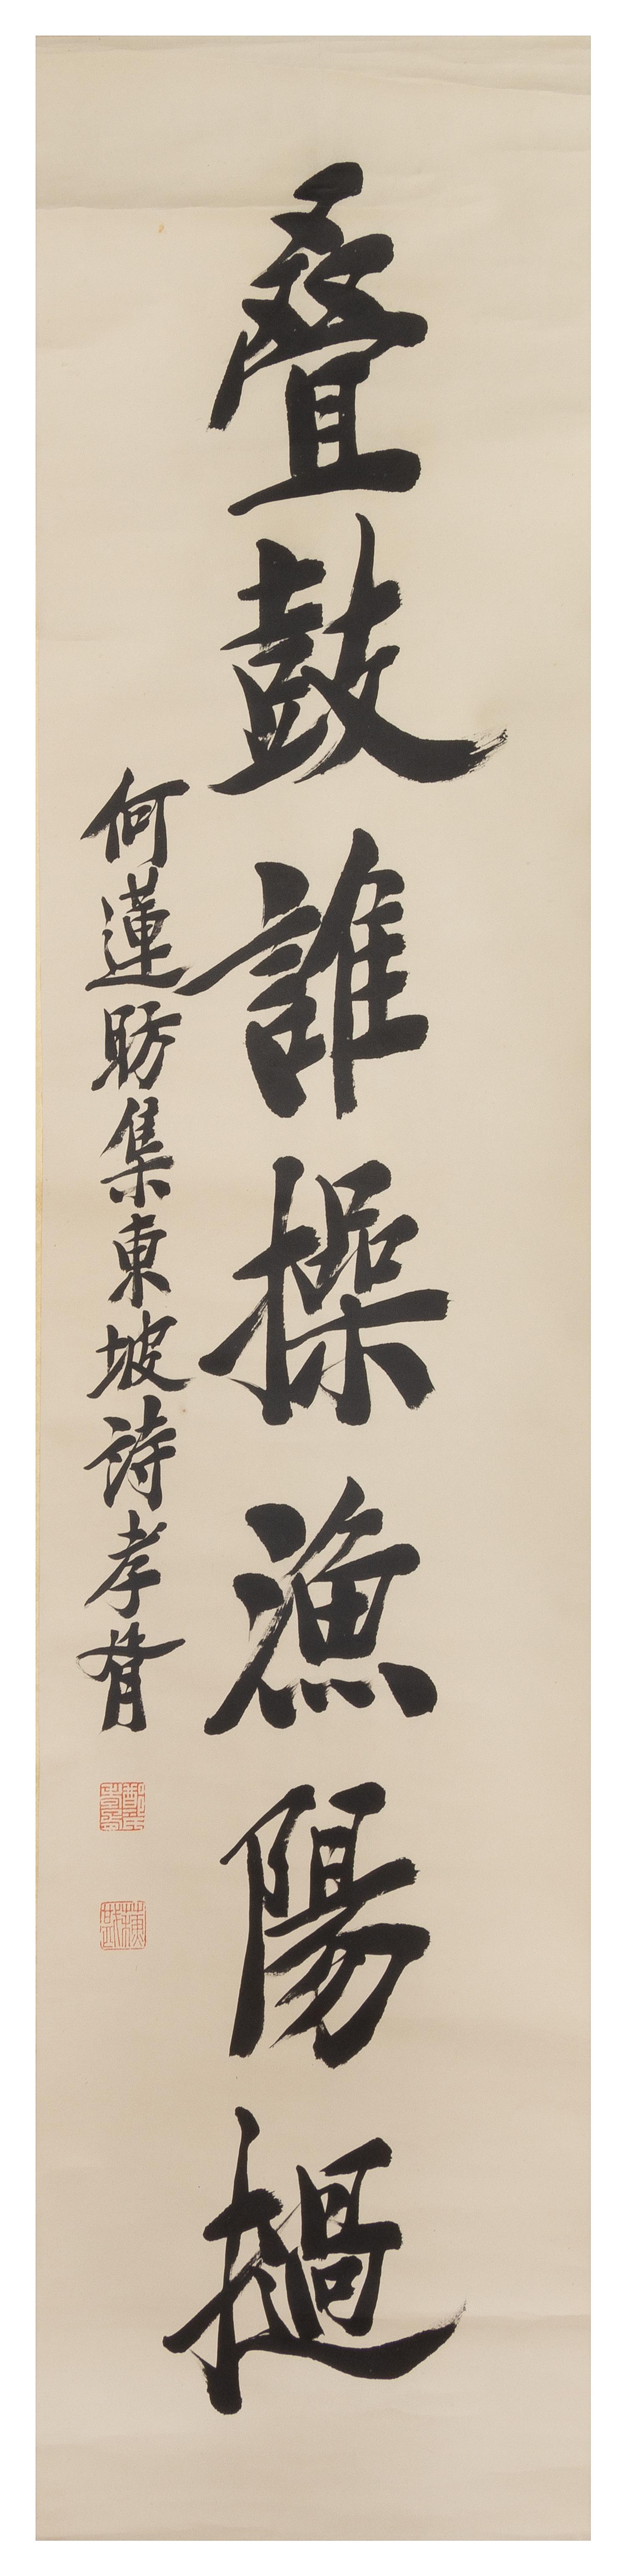 疊鼓誰操漁陽撾
何蓮昉集東坡詩孝胥